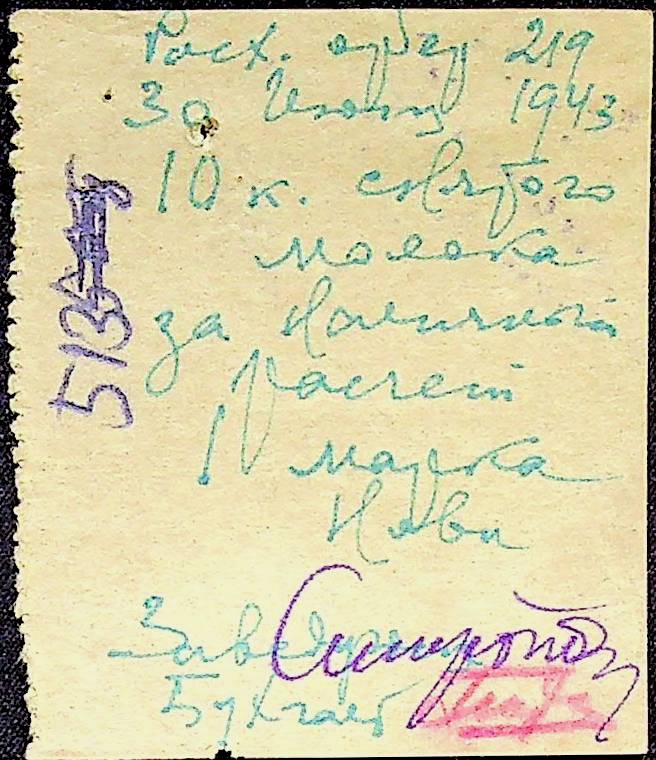 Расх. орд 219
30 Июня 1943
10 к. снятого
молока
за наличный
расчет
1 марка
Заведующ
Бухгалт
513